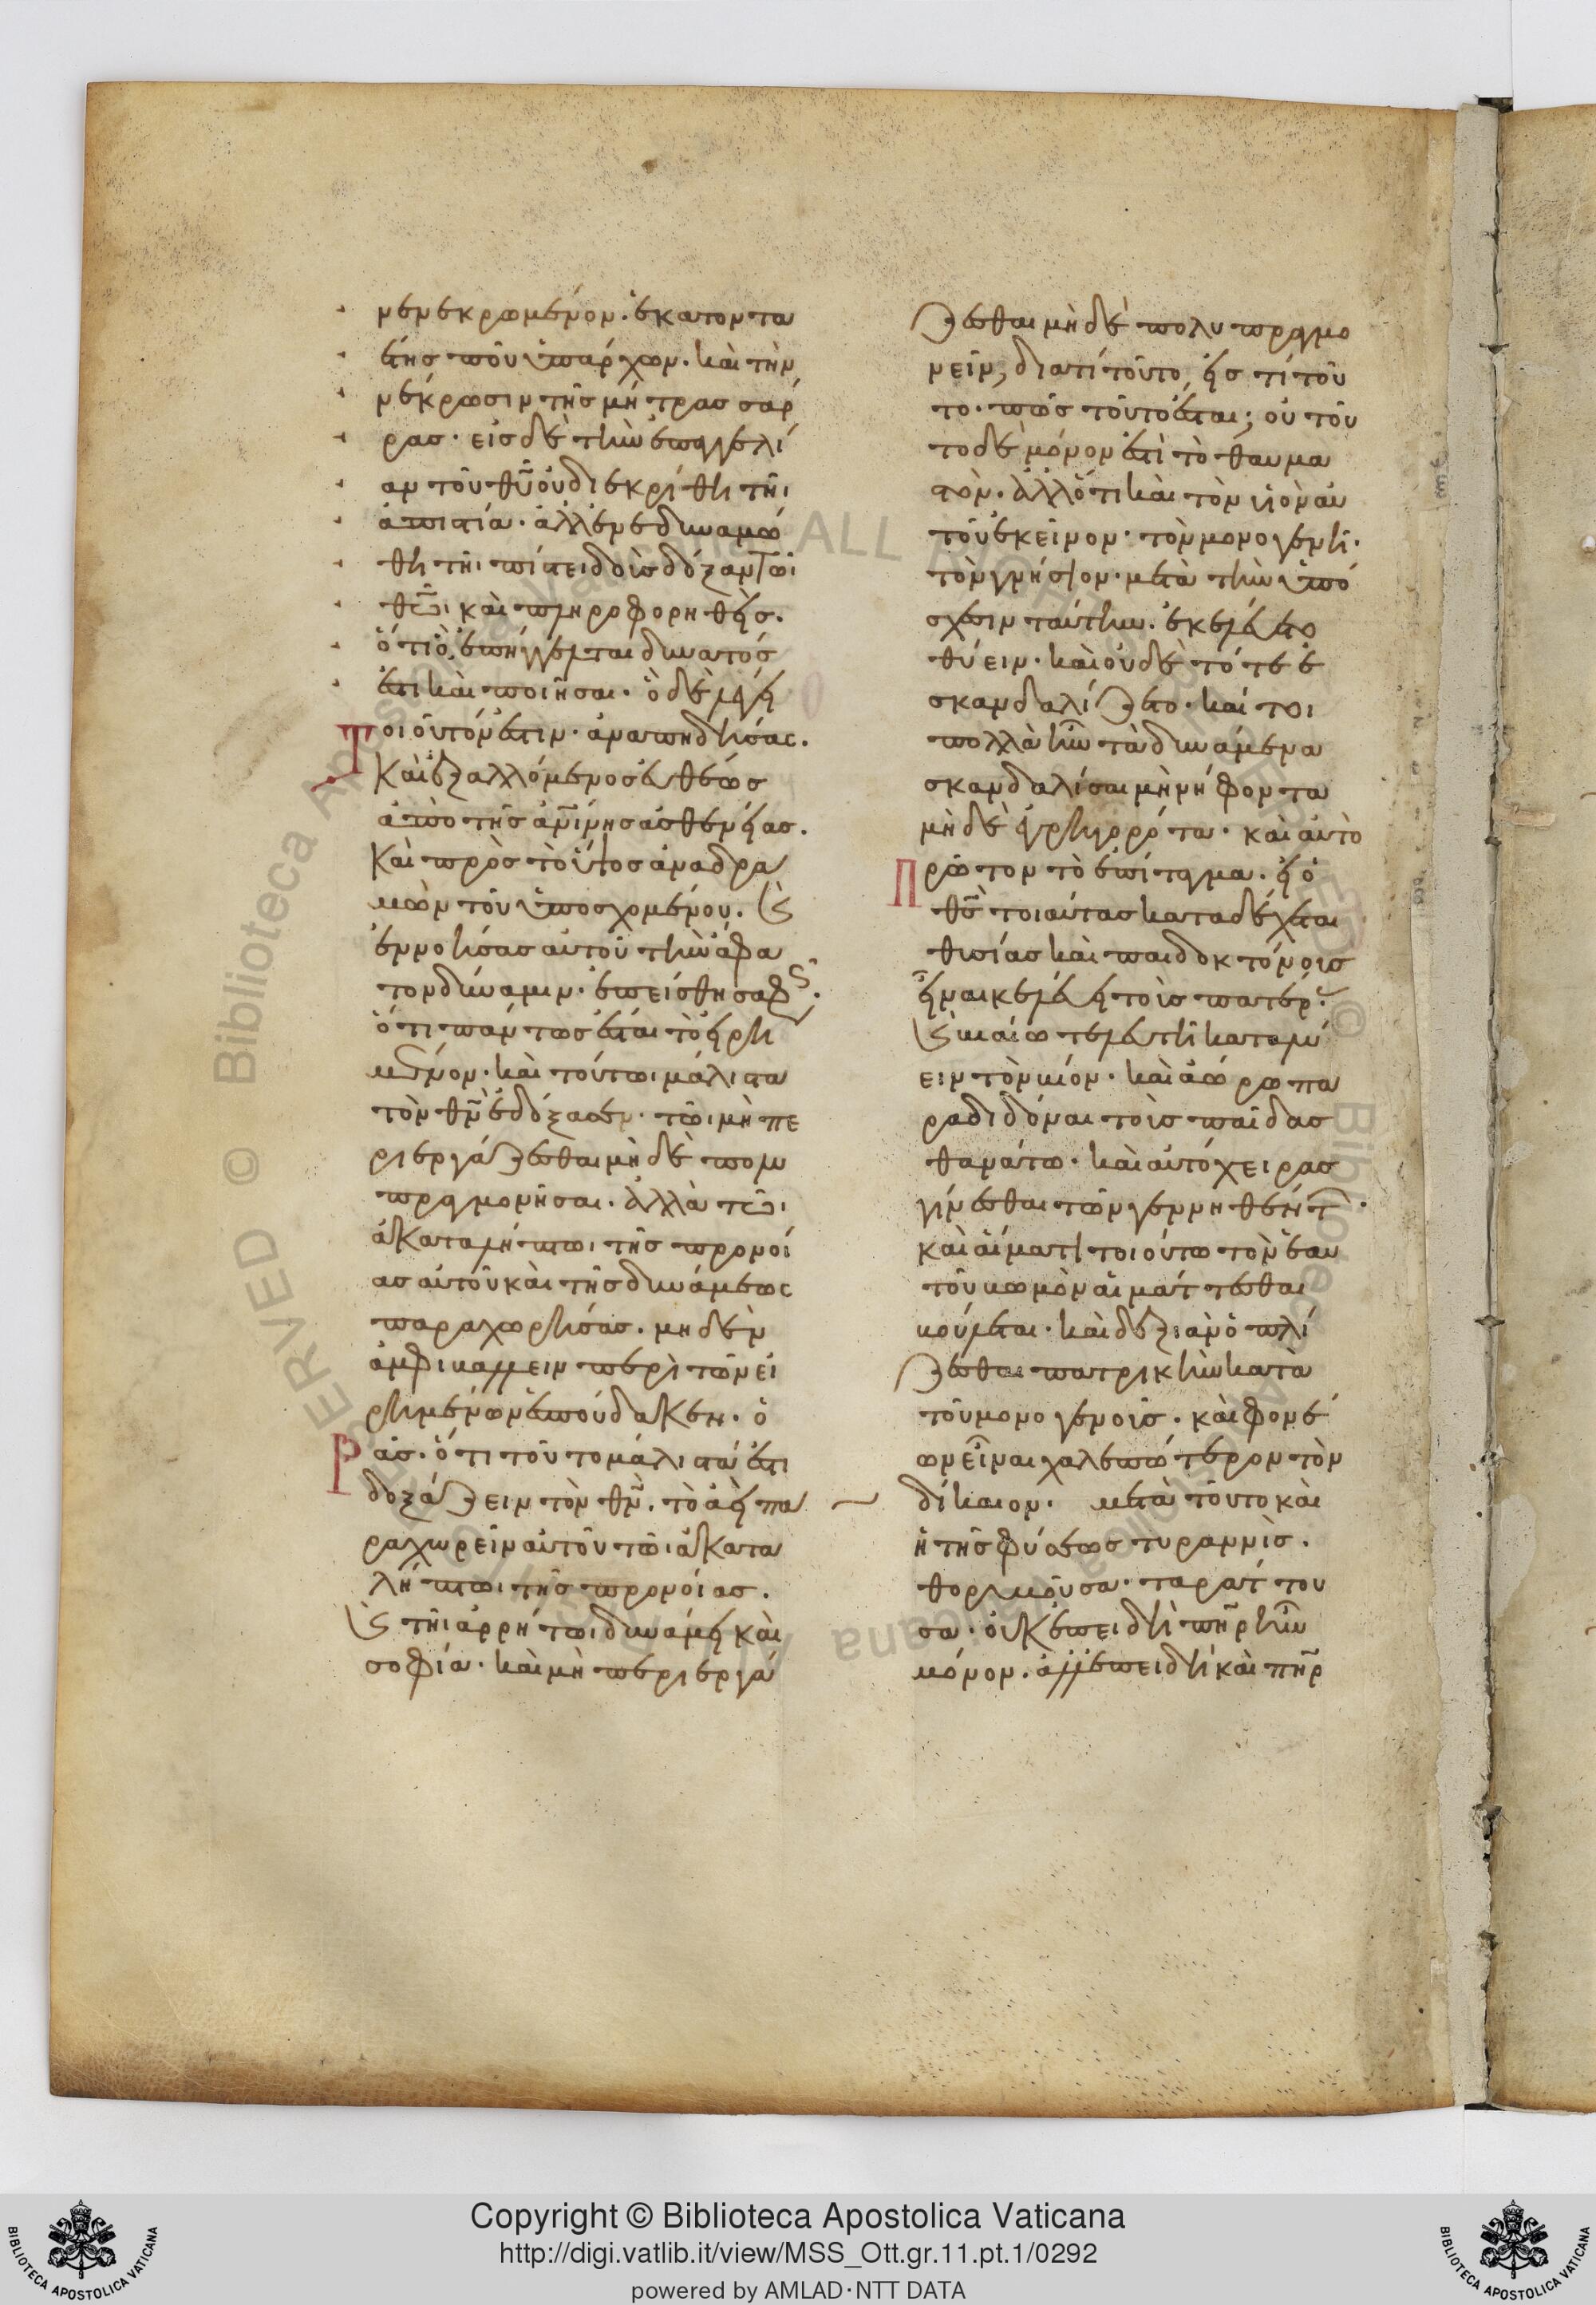 νενεκρωμένον· ἑκατοντα
έτης που ὑπάρχων· καὶ τὴν
νέκρωσιν τῆς μήτρας σάρ
ρας· εἰς δὲ τὴν ἐπαγγελί
αν τοῦ θυ οὐ διεκρίθη τῆι
ἀπιστία· ἀλλ' ἐνεδυναμώ
θη τῆι πίστει δοὺς δόξαν τῶι
θῶι καὶ πληροφορηθείς·
ὅτι ὃ ἐπήγγελται δυνατός
ἐστι καὶ ποιῆσαι· ὁ δὲ λέγει
Τοιοῦτόν ἐστιν· ἀναπηδήσας·
Καὶ ἐξαλλόμενος εὐθέως
ἀπὸ τῆς ἀνίνης ἀσθενείας·
Καὶ πρὸς τὸ ὕψος ἀναδρα
μὼν τοῦ ὑποσχομένου· καὶ
ἐννοήσας αὐτοῦ τὴν ἄφα
τον δύναμιν· ἐπείσθη σαφῶς·
ὅτι πάντως ἔσται τὸ εἰρη
μένον· καὶ τούτωι μάλιστα
τὸν θν ἐδόξασεν· τῶι μὴ πε
ριεργάζεσθαι μηδὲ πολυ
πραγμονῆσαι· ἀλλὰ τῶι
ἀκαταλήπτωι τῆς προνοί
ας αὐτοῦ καὶ τῆς δυνάμεως
παραχωρήσας· μηδὲν
ἀμφιβάλλειν περὶ τῶν εἰ
ρημένων ἐσπούδακεν· ὁ
Ρᾶς· ὅτι τοῦτο μάλιστά ἐστι
δοξάζειν τὸν θν· τὸ ἀεὶ πα
ραχωρεῖν αὐτοῦ τῶι ἀκατα
λήπτωι τῆς προνοίας·
καὶ τῆι ἀρρήτωι δυνάμει καὶ
σοφία· καὶ μὴ περιεργά
ζεσθαι μηδὲ πολυπραγμο
νεῖν, διατί τοῦτο, εἰς τί τοῦ
το· πῶς τοῦτο ἔσται; οὐ τοῦ
το δὲ μόνον ἐστὶ τὸ θαυμα
τὸν· ἀλλ' ὅτι καὶ τὸν υἱὸν αὐ
τοῦ ἐκεῖνον· τὸν μονογενῆ·
τὸν γνήσιον· μετὰ τὴν ὑπό
σχεσιν ταύτην· ἐκελεύετο
θύειν· καὶ οὐδὲ τότε ἐ
σκανδαλίζετο· καί τοι
πολλὰ ἦν τὰ δυνάμενα
σκανδαλίσαι μὴ νήφοντα
μὴ δὲ ἐγρηγορότα· καὶ αὐτὸ
Πρῶτον τὸ ἐπίταγμα· εἰ ὁ
θς τοιαύτας καταδέχεται
θυσίας καὶ παιδοκτόνους
εἶναι κελεύει τοὺς πατέρας
καὶ βιαίω τελευτῆ καταλύ
ειν τὸν βίον· καὶ ἀώρω πα
ραδιδόναι τοὺς παῖδας
θανάτω· καὶ αὐτόχειρας
γίνεσθαι τῶν γεννηθέντων·
καὶ αἵματι τοιούτω τὸν ἑαυ
τοῦ βωμὸν αἱμάττεσθαι
βούλεται· καὶ δεξιὰν ὁπλί
ζεσθαι πατρικὴν κατὰ
τοῦ μονογενοῦς· καὶ φονέ
ων εἶναι χαλεπώτερον τὸν
δίκαιον· μετὰ τοῦτο καὶ
ἡ τῆς φύσεως τυραννὶς·
θορυβοῦσα· ταράττου
σα· οὐκ ἐπειδὴ πηρ ἦν
μόνον· ἀλλ' ἐπειδὴ καὶ πηρ
Copyright © Biblioteca Apostolica Vaticana
http://digi.vatlib.it/view/MSS_Ott.gr.11.pt.1/0292
powered by AMLAD·NTT DATA
BIBLIOTECA APOSTOLICA VATICANA
BIBLIOTECA APOSTOLICA VATICANA